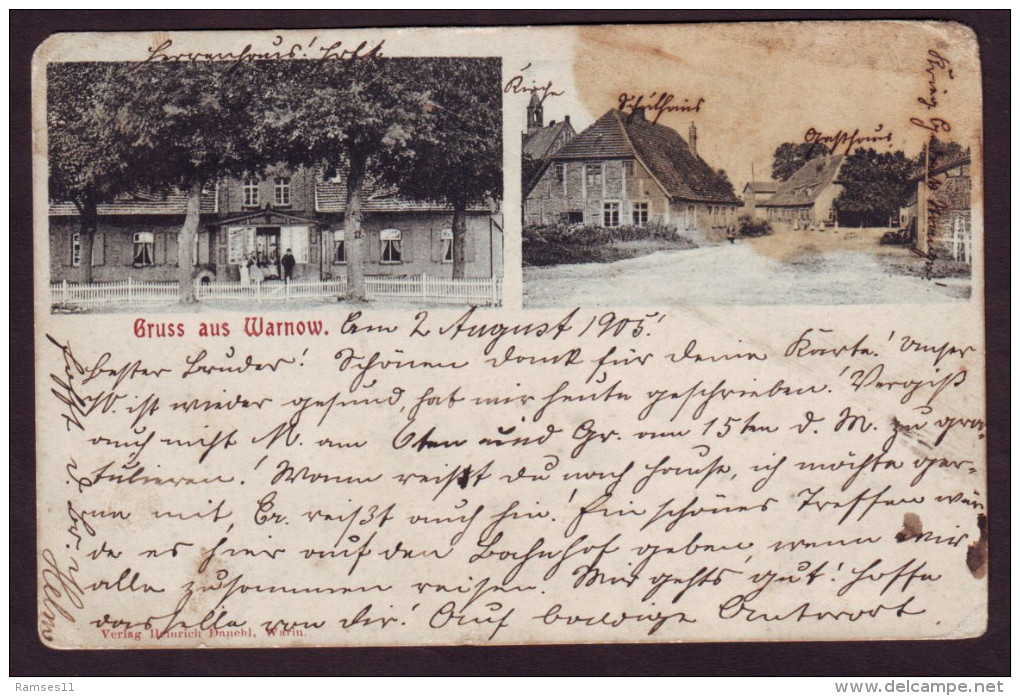 Herrenhaus!
Kirche
Schulhaus
Gasthaus
Gruss aus Warnow. Am 2 August 1905!
Bester Bruder! Schönen Dank für deine Karte! Unser
ist wieder gesund, hat mir heute geschrieben! Vergiß
auch nicht M. am 6ten und Gr. am 15ten d. M. zu gra-
tulieren! Wann reißt Du nach Hause, ich möchte ger-
ne mit, Er. reißt auch hin! Ein schönes Treffen wür-
de es hier auf den Bahnhof geben, wenn wir
alle zusammen reisen. Mir gehts gut! hoffe
dasselbe von Dir! Auf baldige Antwort
hofft d. Br.
Verlag Heinrich Danehl, Warin.
Ramses11
www.delcampe.net